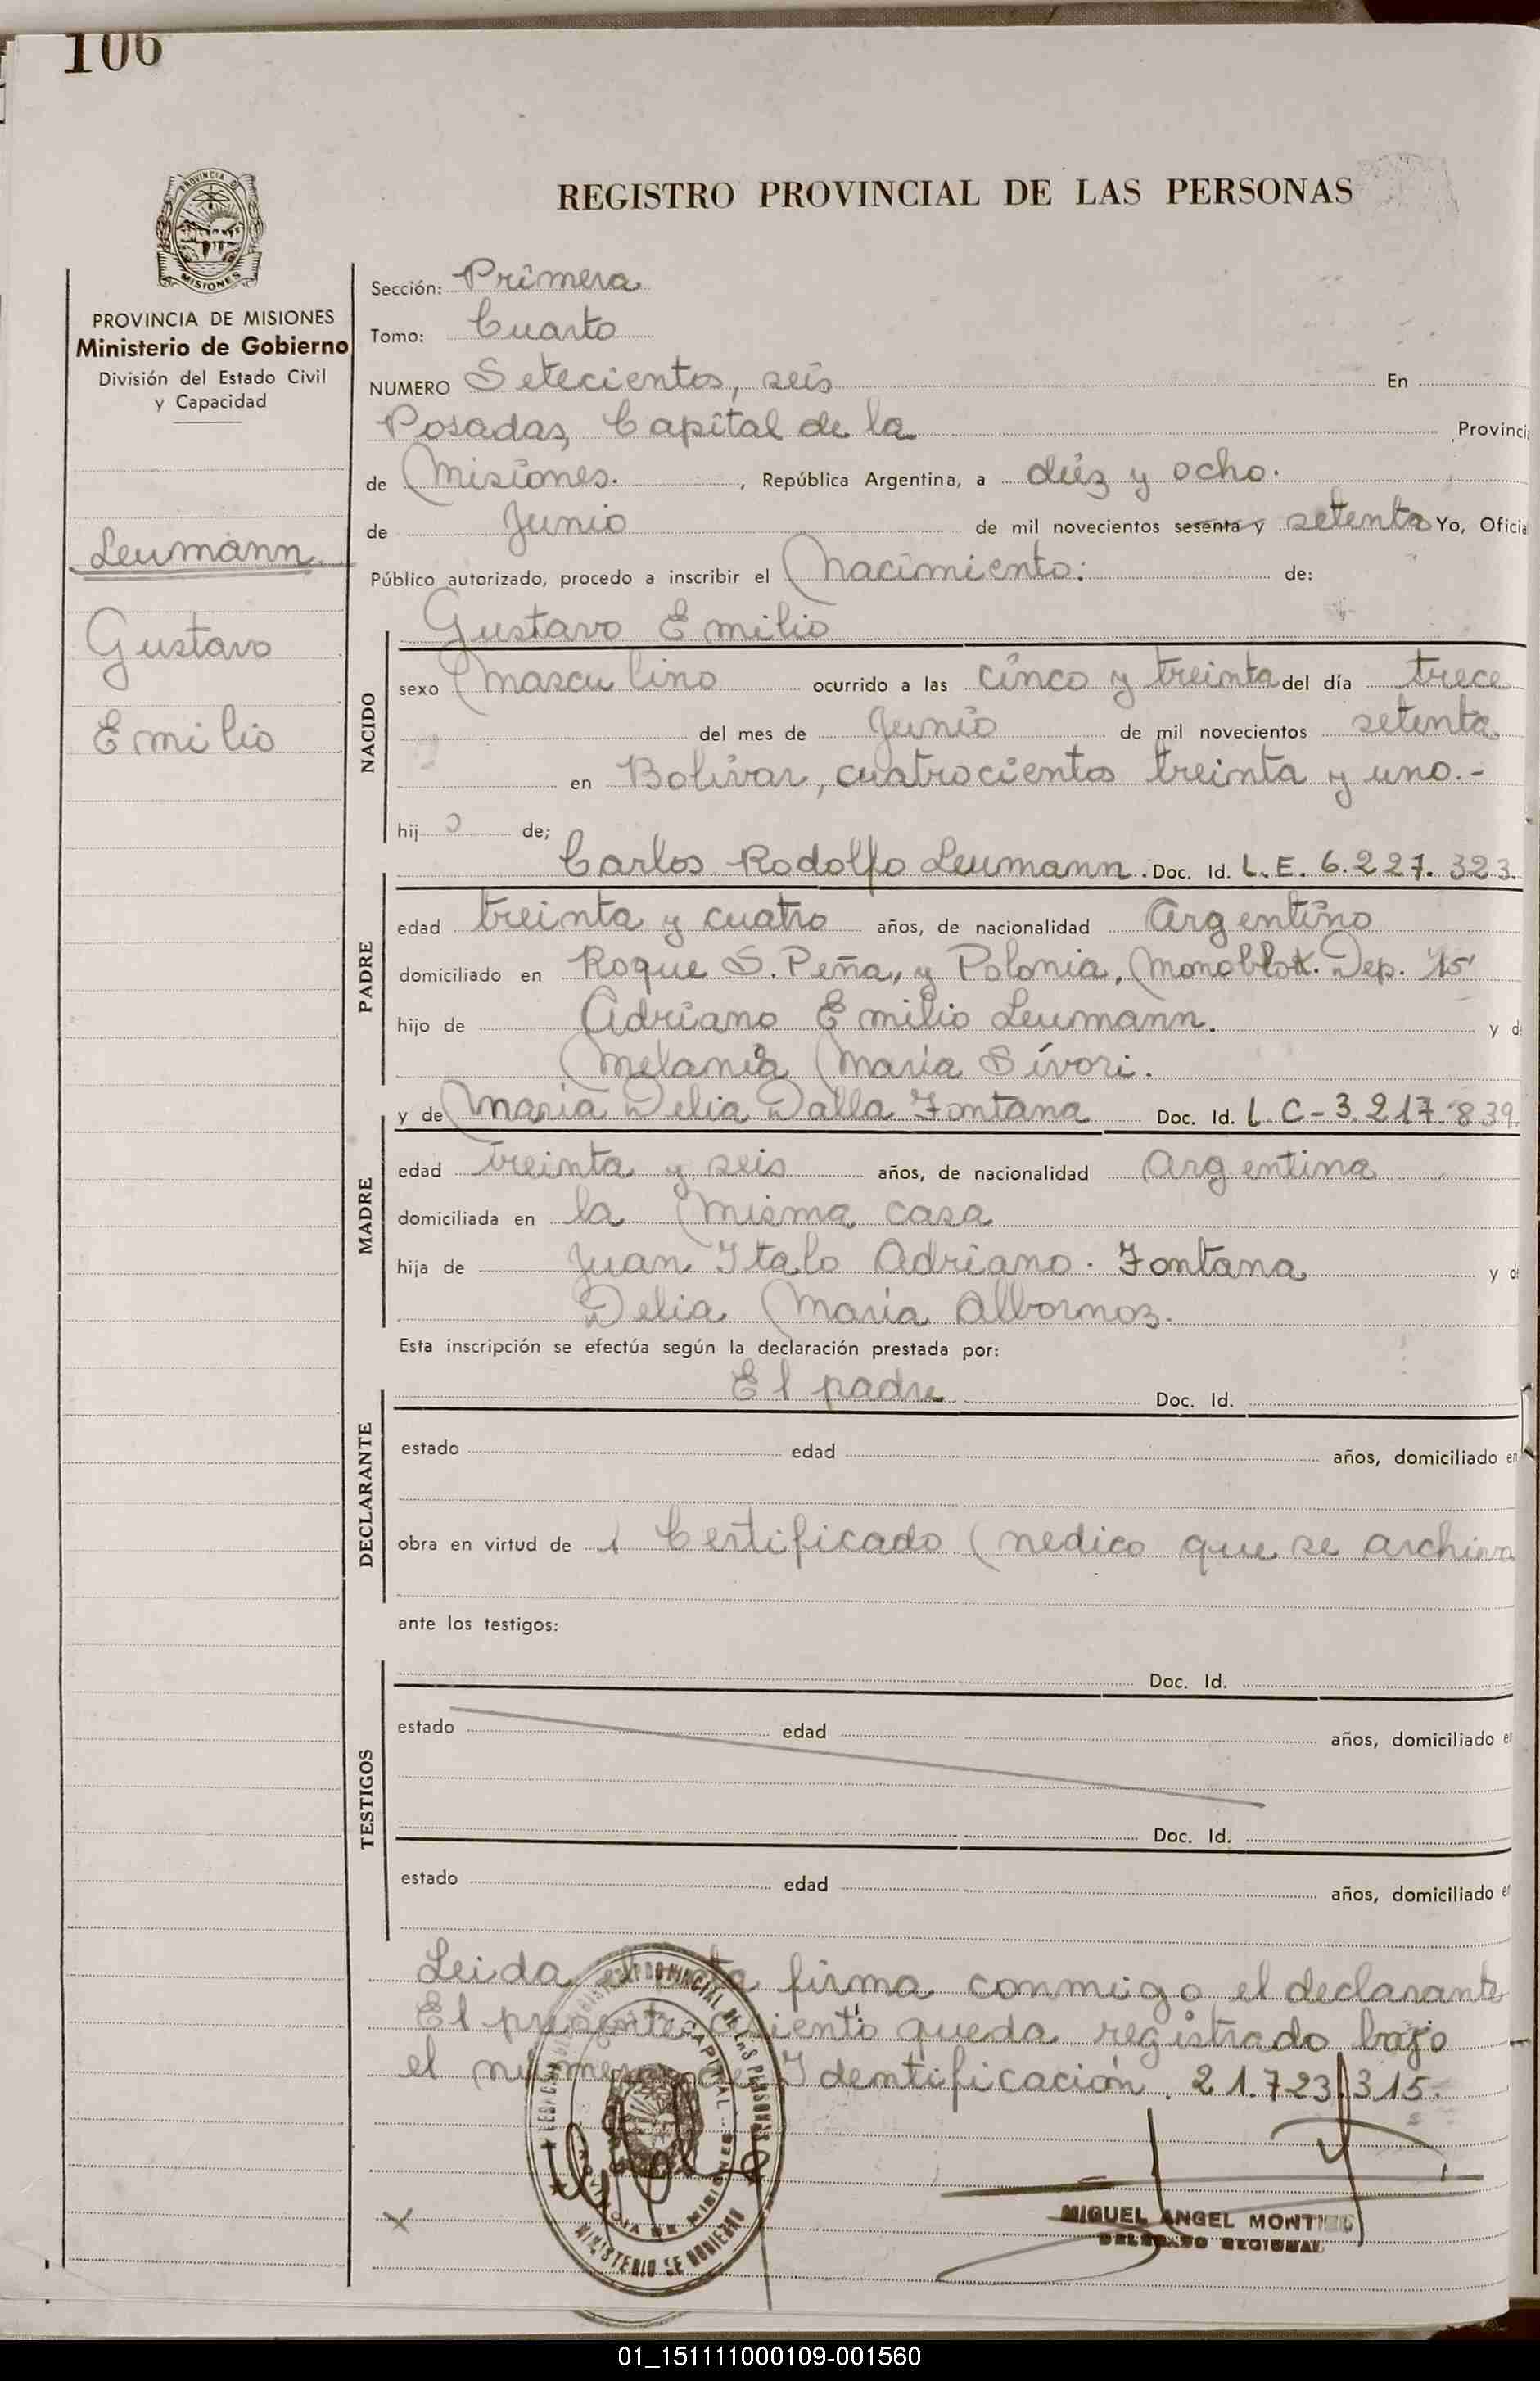 106
REGISTRO PROVINCIAL DE LAS PERSONAS
PROVINCIA DE
MISIONES
PROVINCIA DE MISIONES
Ministerio de Gobierno
División del Estado Civil
y Capacidad
Leumann
Gustavo
Emilio
Sección: Primera
Tomo: Cuarto
NUMERO Setecientos, seis En
Posadas, Capital de la Provinci
de Misiones. , República Argentina, a diez y ocho.
de Junio de mil novecientos sesenta y setenta Yo, Oficia
Público autorizado, procedo a inscribir el Nacimiento: de:
Gustavo Emilio
NACIDO
sexo Masculino ocurrido a las cinco y treinta del día trece
del mes de Junio de mil novecientos setenta
en Bolívar, cuatrocientos treinta y uno.-
hij o de;
Carlos Rodolfo Leumann. Doc. Id. L.E. 6.227.323.
PADRE
edad treinta y cuatro años, de nacionalidad Argentino
domiciliado en Roque S. Peña, y Polonia, Monoblok. Dep. "15"
hijo de Adriano Emilio Leumann. y d
Melania María Sívori.
y de María Delia Dalla Fontana Doc. Id. L.C-3.217.839.
MADRE
edad treinta y seis años, de nacionalidad Argentina
domiciliada en la misma casa
hija de Juan Italo Adriano. Fontana y d
Delia María Albornoz.
Esta inscripción se efectúa según la declaración prestada por:
El padre Doc. Id.
DECLARANTE
estado edad años, domiciliado en
obra en virtud de 1 Certificado Medico que se archiva
ante los testigos:
Doc. Id.
TESTIGOS
estado edad años, domiciliado e
Doc. Id.
estado edad años, domiciliado e
Leida el acta firma conmigo el declarante
El presente asiento queda registrado bajo
el número de Identificación. 21.723.315.
REGISTRO PROVINCIAL DE LAS PERSONAS
CAPITAL
PROVINCIA DE MISIONES
MINISTERIO DE GOBIERNO
MIGUEL ANGEL MONTIEL
DELEGADO REGIONAL
01_151111000109-001560